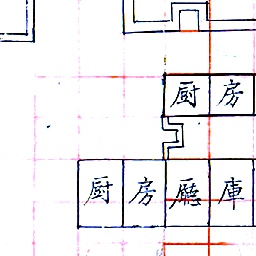 厨房
厨房廳庫